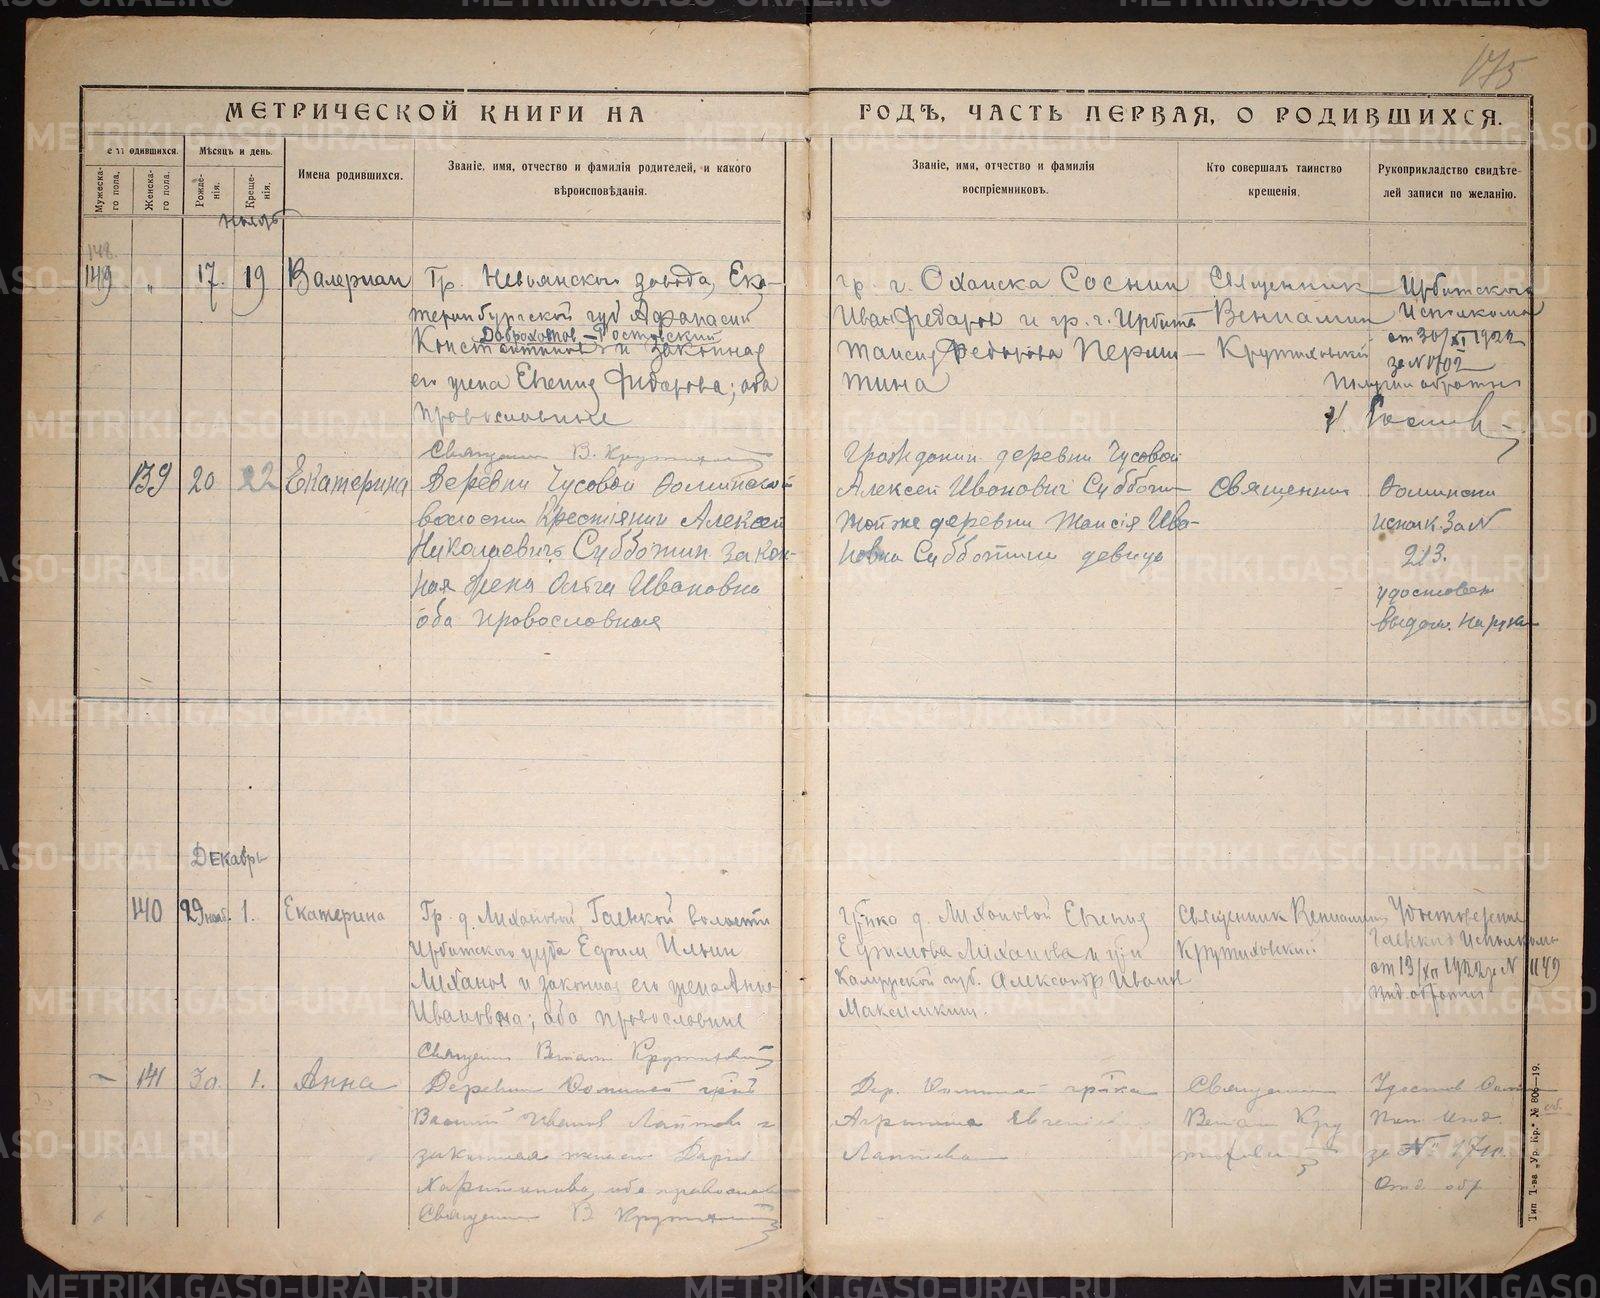 175
МЕТРИЧЕСКОЙ КНИГИ НА ГОДЪ, ЧАСТЬ ПЕРВАЯ, О РОДИВШИХСЯ.
одившихся.
Мѣсяцъ и день.
Мужеска-
го пола.
Женска-
го пола.
Рожде-
нія.
Креще-
нія.
Имена родившихся.
Званіе, имя, отчество и фамилія родителей, и какого
вѣроисповѣданія.
Званіе, имя, отчество и фамилія
воспріемниковъ.
Кто совершалъ таинство
крещенія.
Рукоприкладство свидѣте-
лей записи по желанію.
Ноябрь
148.
149 " 17. 19 Валериан
Гр. Невьянского завода, Ека-
теринбургской губ Афанасий
Доброхотов-Ростовский
Константинов и законная
его жена Евгения Фидорова; оба
православные
Священник В. Крутиховский
гр. г. Оханска Соснин
Иван Федоров и гр. г. Ирбита
Таисия Федорова Перши-
тина
Священник
Вениамин
Крутиховский
Ирбитского
Исполкома
от 30/XI 1922
за № 1702
Получил обратно
139 20 22 Екатерина
Деревни Чусовой Фоминской
волости Крестьянин Алексей
Николаевичъ Субботин закон-
ная жена Ольга Ивановна
оба православныя
Гражданин деревни Чусовой
Алексей Иванович Субботин
той же деревни Таисія Ива-
новна Субботина девица
Священник
Фомински
исполк. За №
213.
удостовер
выдан. на руки
Декабрь
140 29 нояб. 1. Екатерина
Гр. д. Лихановой Гаевской волости
Ирбитского уезда Ефрем Ильин
Лиханов и законная его жена Анна
Ивановна; оба православные
Священник Вениамин Крутиховский
гр-нка д. Лихановой Евгения
Ефимова Лиханова и гр-н
Калужской губ. Александр Иванов
Максимкин.
Священник Вениамин
Крутиховский
Удостоверение
Гаевского Исполкома
от 13/XII 1922 г № 1149
- 141 30. 1. Анна
Деревни Фоминой гр-н
Василий Иванов Лаптев и
законная жена его Дарья
Харитонова, оба православные
Священник В Крутиховский
Дер. Фоминой гр-нка
Агрипина Евгеніева
Лаптева
Священник
Вениамин Кру
тиховский
за №
Тип Т-ва „Ур. Кр." № 806—19.
METRIKI.GASO-URAL.RU